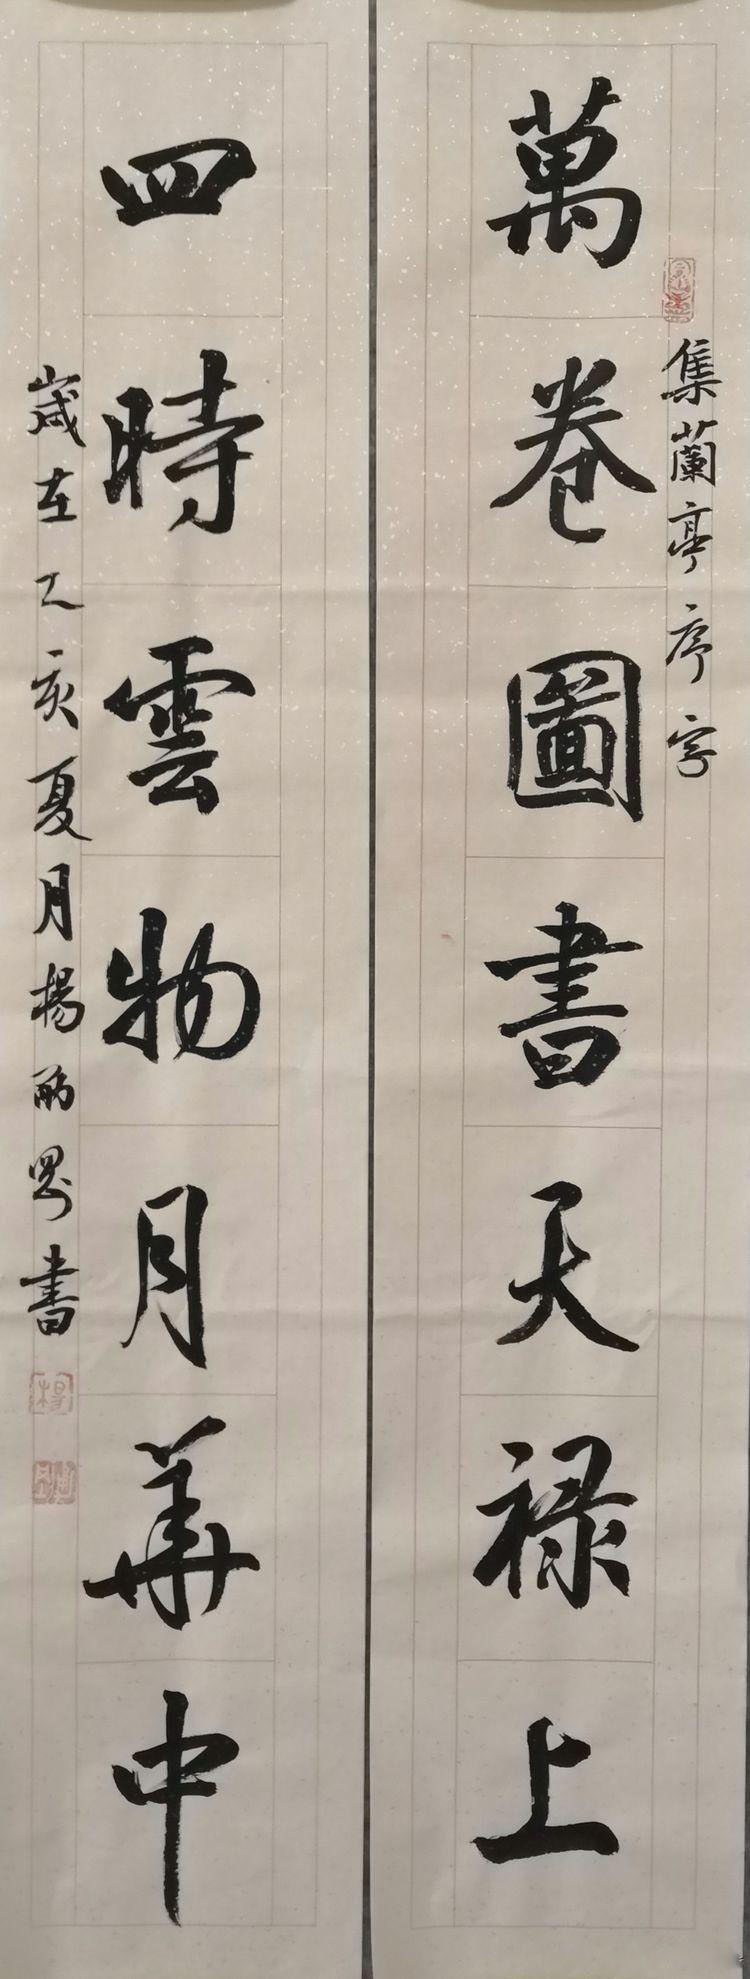 萬卷圖書天禄上
集蘭亭序字
四時雲物月華中
歲在乙亥夏月楊
書